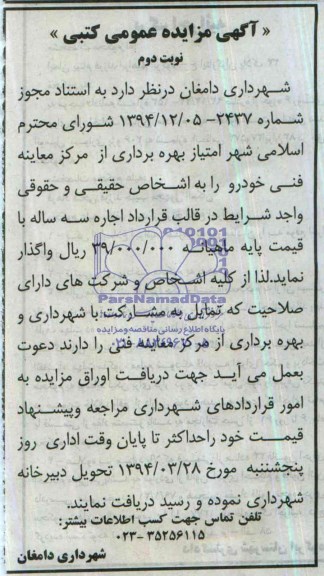 « آگهی مزایده عمومی کتبی »
نوبت دوم
شهرداری دامغان درنظر دارد به استناد مجوز
شماره ۲۴۳۷- ۱۳۹۴/۱۲/۰۵ شورای محترم
اسلامی شهر امتیاز بهره برداری از مرکز معاینه
فنی خودرو را به اشخاص حقیقی و حقوقی
واجد شرایط در قالب قرارداد اجاره سه ساله با
قیمت پایه ماهیانه ۳۹/۰۰۰/۰۰۰ ریال واگذار
نماید.لذا از کلیه اشخاص و شرکت های دارای
ParsNamadData
صلاحیت که تمایل به مشارکت با شهرداری و
پایگاه اطلاع رسانی مناقصه ومزایده
بهره برداری از مرکز معاینه فنی را دارند دعوت
بعمل می آید جهت دریافت اوراق مزایده به
امور قراردادهای شهرداری مراجعه وپیشنهاد
قیمت خود راحداکثر تا پایان وقت اداری روز
پنجشننبه مورخ ۱۳۹۴/۰۳/۲۸ تحویل دبیرخانه
شهرداری نموده و رسید دریافت نمایند.
تلفن تماس جهت کسب اطلاعات بیشتر:
۰۲۳- ۳۵۲۵۶۱۱۵
شهرداری دامغان